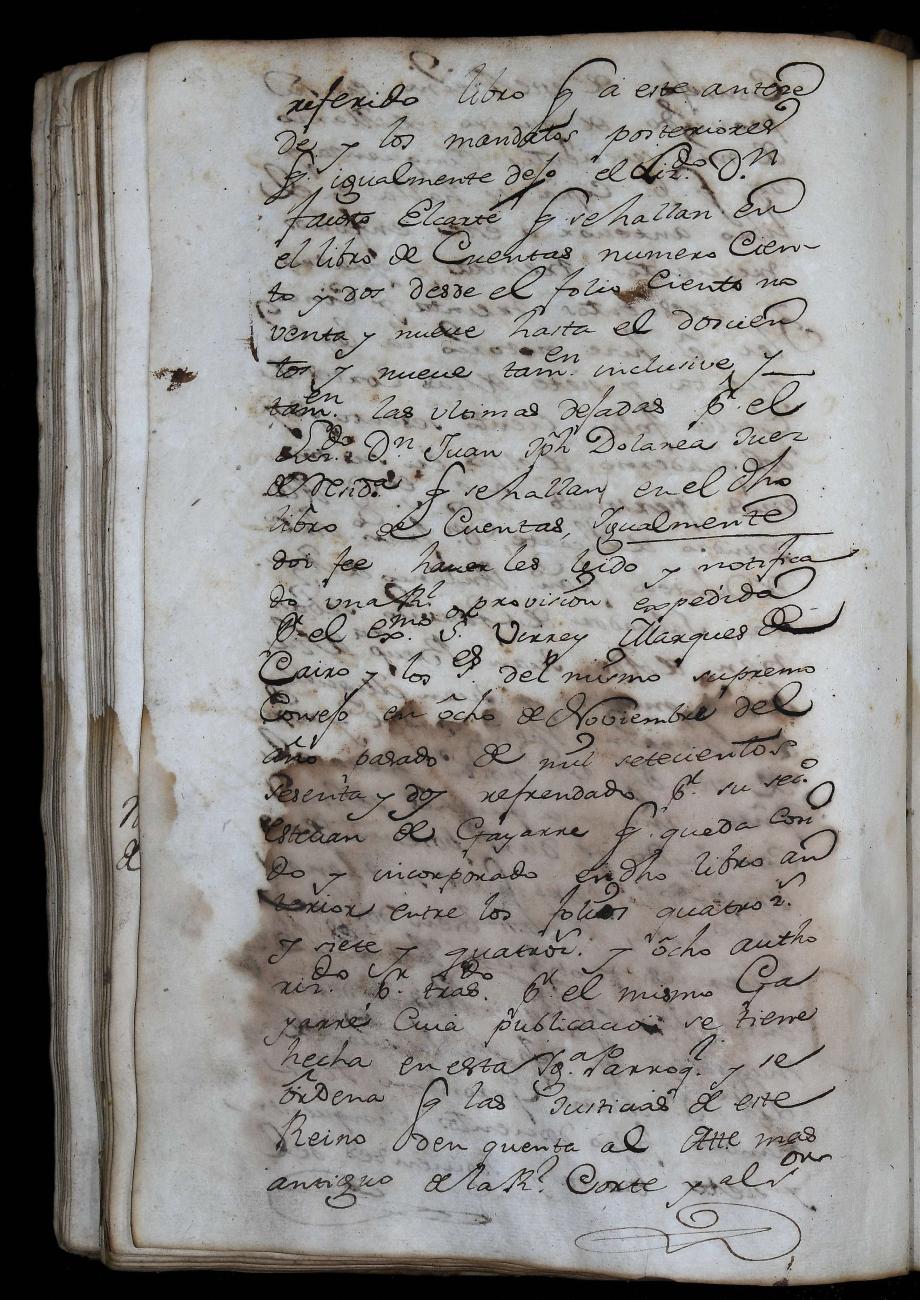 referido libro q̃ a este antece
de y los mandatos posteriores
q̃ igualmente dejo el Lizdo. Dn.
Fausto Elcarte q̃ se hallan en
el libro de Cuentas numero Cien-
to y dos desde el folio Ciento no
venta y nueve hasta el doscien
tos y nueve tamen. inclusive, y
tamen. las ultimas dejadas pr. el
Lizdo. Dn. Juan Jph Dolarea Juez
de Resida. q̃ se hallan en el dho
libro de Cuentas, Igualmente
doi fee haverles leido y notifica
do una Rl. provision expedida
pr. el exmo. Sor. Virrey Marques de
Cairo y los es del mismo supremo
Consejo en ocho de Noviembre del
año pasado de mil setecientos
sesenta y dos refrendado pr. su seco.
Estevan de Gayarre q̃. queda con
do y incorporado en dho libro an
terior entre los folios quatro z.
y siete y quatroz. y ocho autho
rizdo. pr. trasdo. pr. el mismo Ga
yarre Cuia publicacion se tiene
hecha en esta Iga. Parroql. y se
ordena q̃ las Justicias de este
Reino den quenta al Atte mas
antiguo de la Rl. Corte y al Sor